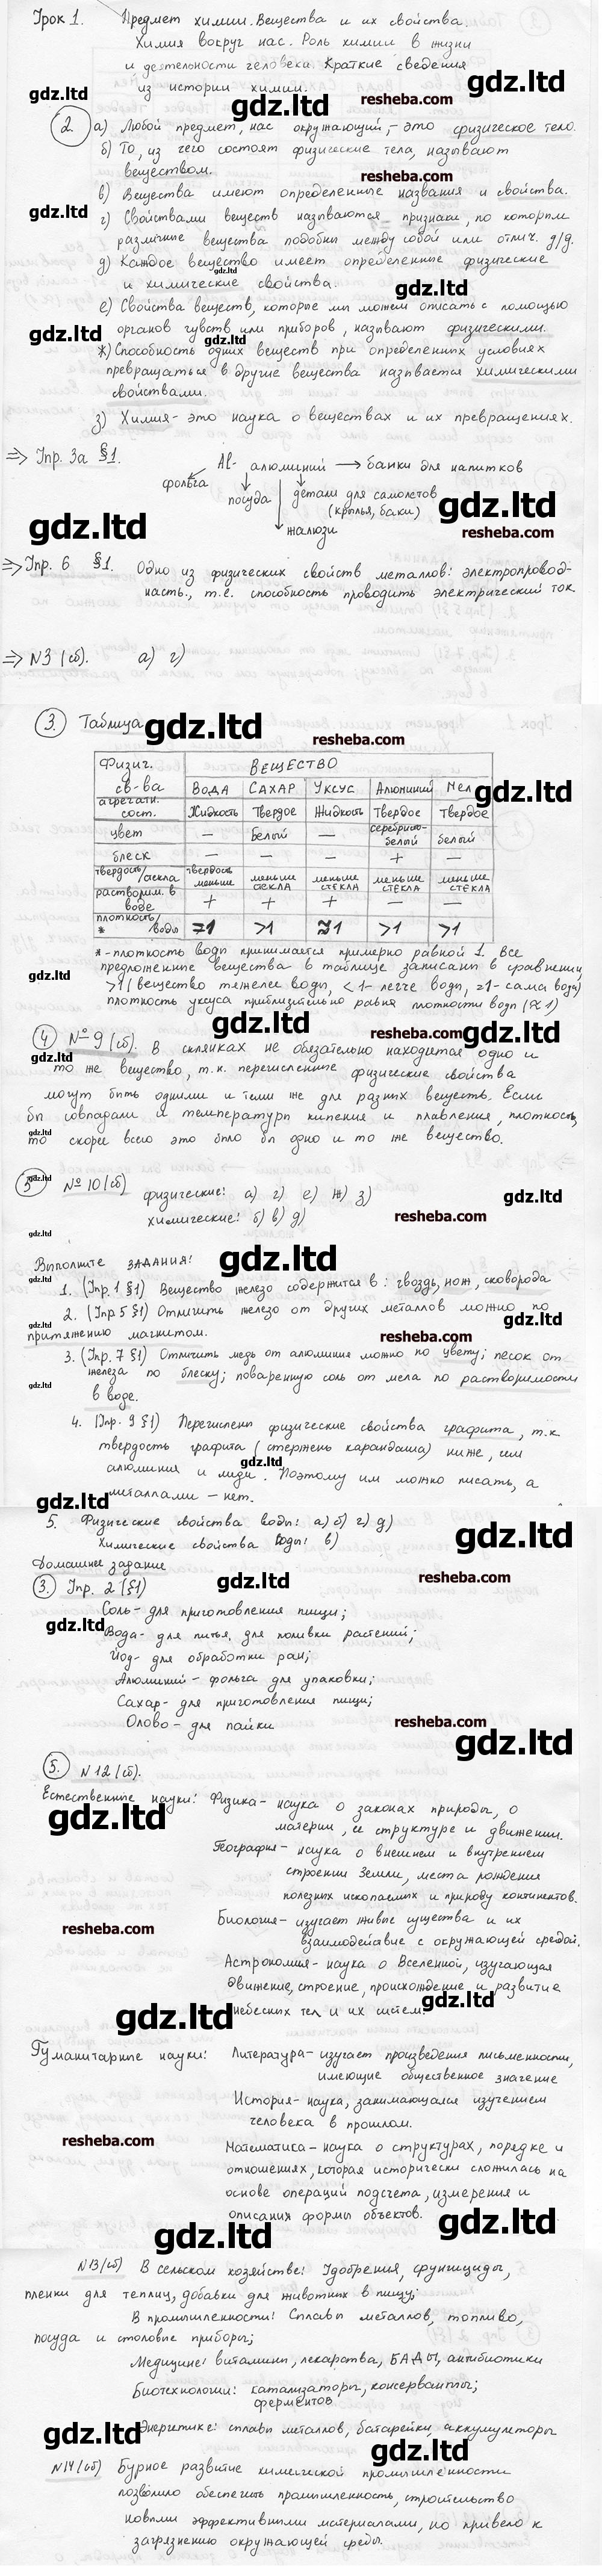 Урок 1. Предмет химии. Вещества и их свойства.
Химия вокруг нас. Роль химии в жизни
и деятельности человека. Краткие сведения
из истории химии.
gdz.ltd gdz.ltd resheba.com
2. а) Любой предмет, нас окружающий, - это физическое тело.
б) То, из чего состоят физические тела, называют
веществом.
resheba.com
в) Вещества имеют определенные названия и свойства.
gdz.ltd
г) Свойствами веществ называются признаки, по которым
различные вещества подобны между собой или отлич. д/д.
д) Каждое вещество имеет определенные физические
gdz.ltd
и химические свойства.
gdz.ltd
е) Свойства веществ, которые мы можем описать с помощью
органов чувств или приборов, называют физическими.
gdz.ltd gdz.ltd
ж) Способность одних веществ при определенных условиях
превращаться в другие вещества называется химическими
свойствами.
з) Химия - это наука о веществах и их превращениях.
=> Упр. 3а §1. Al - алюминий → банки для напитков
фольга посуда детали для самолетов
(крылья, баки)
жалюзи
gdz.ltd gdz.ltd resheba.com
=> Упр. 6 §1. Одно из физических свойств металлов: электропровод-
ность., т.е. способность проводить электрический ток.
=> N3 (сб). а) г)
3. Таблица
gdz.ltd resheba.com
Физич. св-ва ВЕЩЕСТВО
ВОДА САХАР УКСУС Алюминий Мел
gdz.ltd
агрегатн. сост. Жидкость Твердое Жидкость Твердое Твердое
цвет — Белый — серебристо-белый белый
блеск — — — + —
твердость/стекла твердость меньше меньше стекла меньше стекла меньше стекла меньше стекла
растворим. в воде + + + — —
плотность/воды * =1 >1 ≈1 >1 >1
* - плотность воды принимается примерно равной 1. Все
gdz.ltd
предложенные вещества в таблице записаны в сравнении
>1 (вещество тяжелее воды, <1 - легче воды, =1 - сама вода)
плотность уксуса приблизительно равна плотности воды (≈1)
gdz.ltd resheba.com gdz.ltd
4 № 9 (сб). В склянках не обязательно находится одно и
gdz.ltd
то же вещество, т.к. перечисленные физические свойства
могут быть одними и теми же для разных веществ. Если
бы совпадали и температуры кипения и плавления, плотность,
gdz.ltd
то скорее всего это было бы одно и то же вещество.
5 № 10 (сб) физические: а) г) е) ж) з)
gdz.ltd gdz.ltd
химические: б) в) д)
resheba.com
gdz.ltd
Выполните задания:
gdz.ltd
1. (Упр. 1 §1) Вещество железо содержится в: гвоздь, нож, сковорода
gdz.ltd
2. (Упр 5 §1) Отличить железо от других металлов можно по
gdz.ltd gdz.ltd
притяжению магнитом.
resheba.com
3. (Упр. 7 §1) Отличить медь от алюминия можно по цвету; песок от
gdz.ltd
железа по блеску; поваренную соль от мела по растворимости
gdz.ltd
в воде.
4. (Упр. 9 §1) Перечислены физические свойства графита, т.к
твердость графита (стержень карандаша) ниже, чем
gdz.ltd
алюминия и меди. Поэтому им можно писать, а
металлами - нет.
gdz.ltd
5. Физические свойства воды: а) б) г) д)
Химические свойства воды: в)
gdz.ltd
Домашнее задание
3. Упр. 2 (§1)
gdz.ltd resheba.com
Соль - для приготовления пищи;
gdz.ltd
Вода - для питья, для поливки растений;
Йод - для обработки ран;
Алюминий - фольга для упаковки;
Сахар - для приготовления пищи;
Олово - для пайки
resheba.com
gdz.ltd
5. N 12 (сб).
Естественные науки: Физика - наука о законах природы, о
gdz.ltd
материи, ее структуре и движении.
География - наука о внешнем и внутреннем
строении Земли, места рождения
полезных ископаемых и природу континентов.
resheba.com
Биология - изучает живые существа и их
взаимодействие с окружающей средой.
Астрономия - наука о Вселенной, изучающая
движение, строение, происхождение и развитие
gdz.ltd gdz.ltd
небесных тел и их систем.
Гуманитарные науки: Литература - изучает произведения письменности,
имеющие общественное значение
История - наука, занимающаяся изучением
человека в прошлом.
resheba.com
Математика - наука о структурах, порядке и
отношениях, которая исторически сложилась на
основе операций подсчета, измерения и
описания формы объектов.
gdz.ltd gdz.ltd
N13 (сб) В сельском хозяйстве: Удобрения, фунгициды,
пленки для теплиц, добавки для животных в пищу;
В промышленности: Сплавы металлов, топливо,
посуда и столовые приборы;
Медицине: витамины, лекарства, БАДы, антибиотики
Биотехнологии: катализаторы, консерванты;
ферментов
Энергетике: сплавы металлов, батарейки, аккумуляторы
gdz.ltd gdz.ltd
N14 (сб) Бурное развитие химической промышленности
позволило обеспечить промышленность, строительство
новыми эффективными материалами, но привело к
загрязнению окружающей среды.